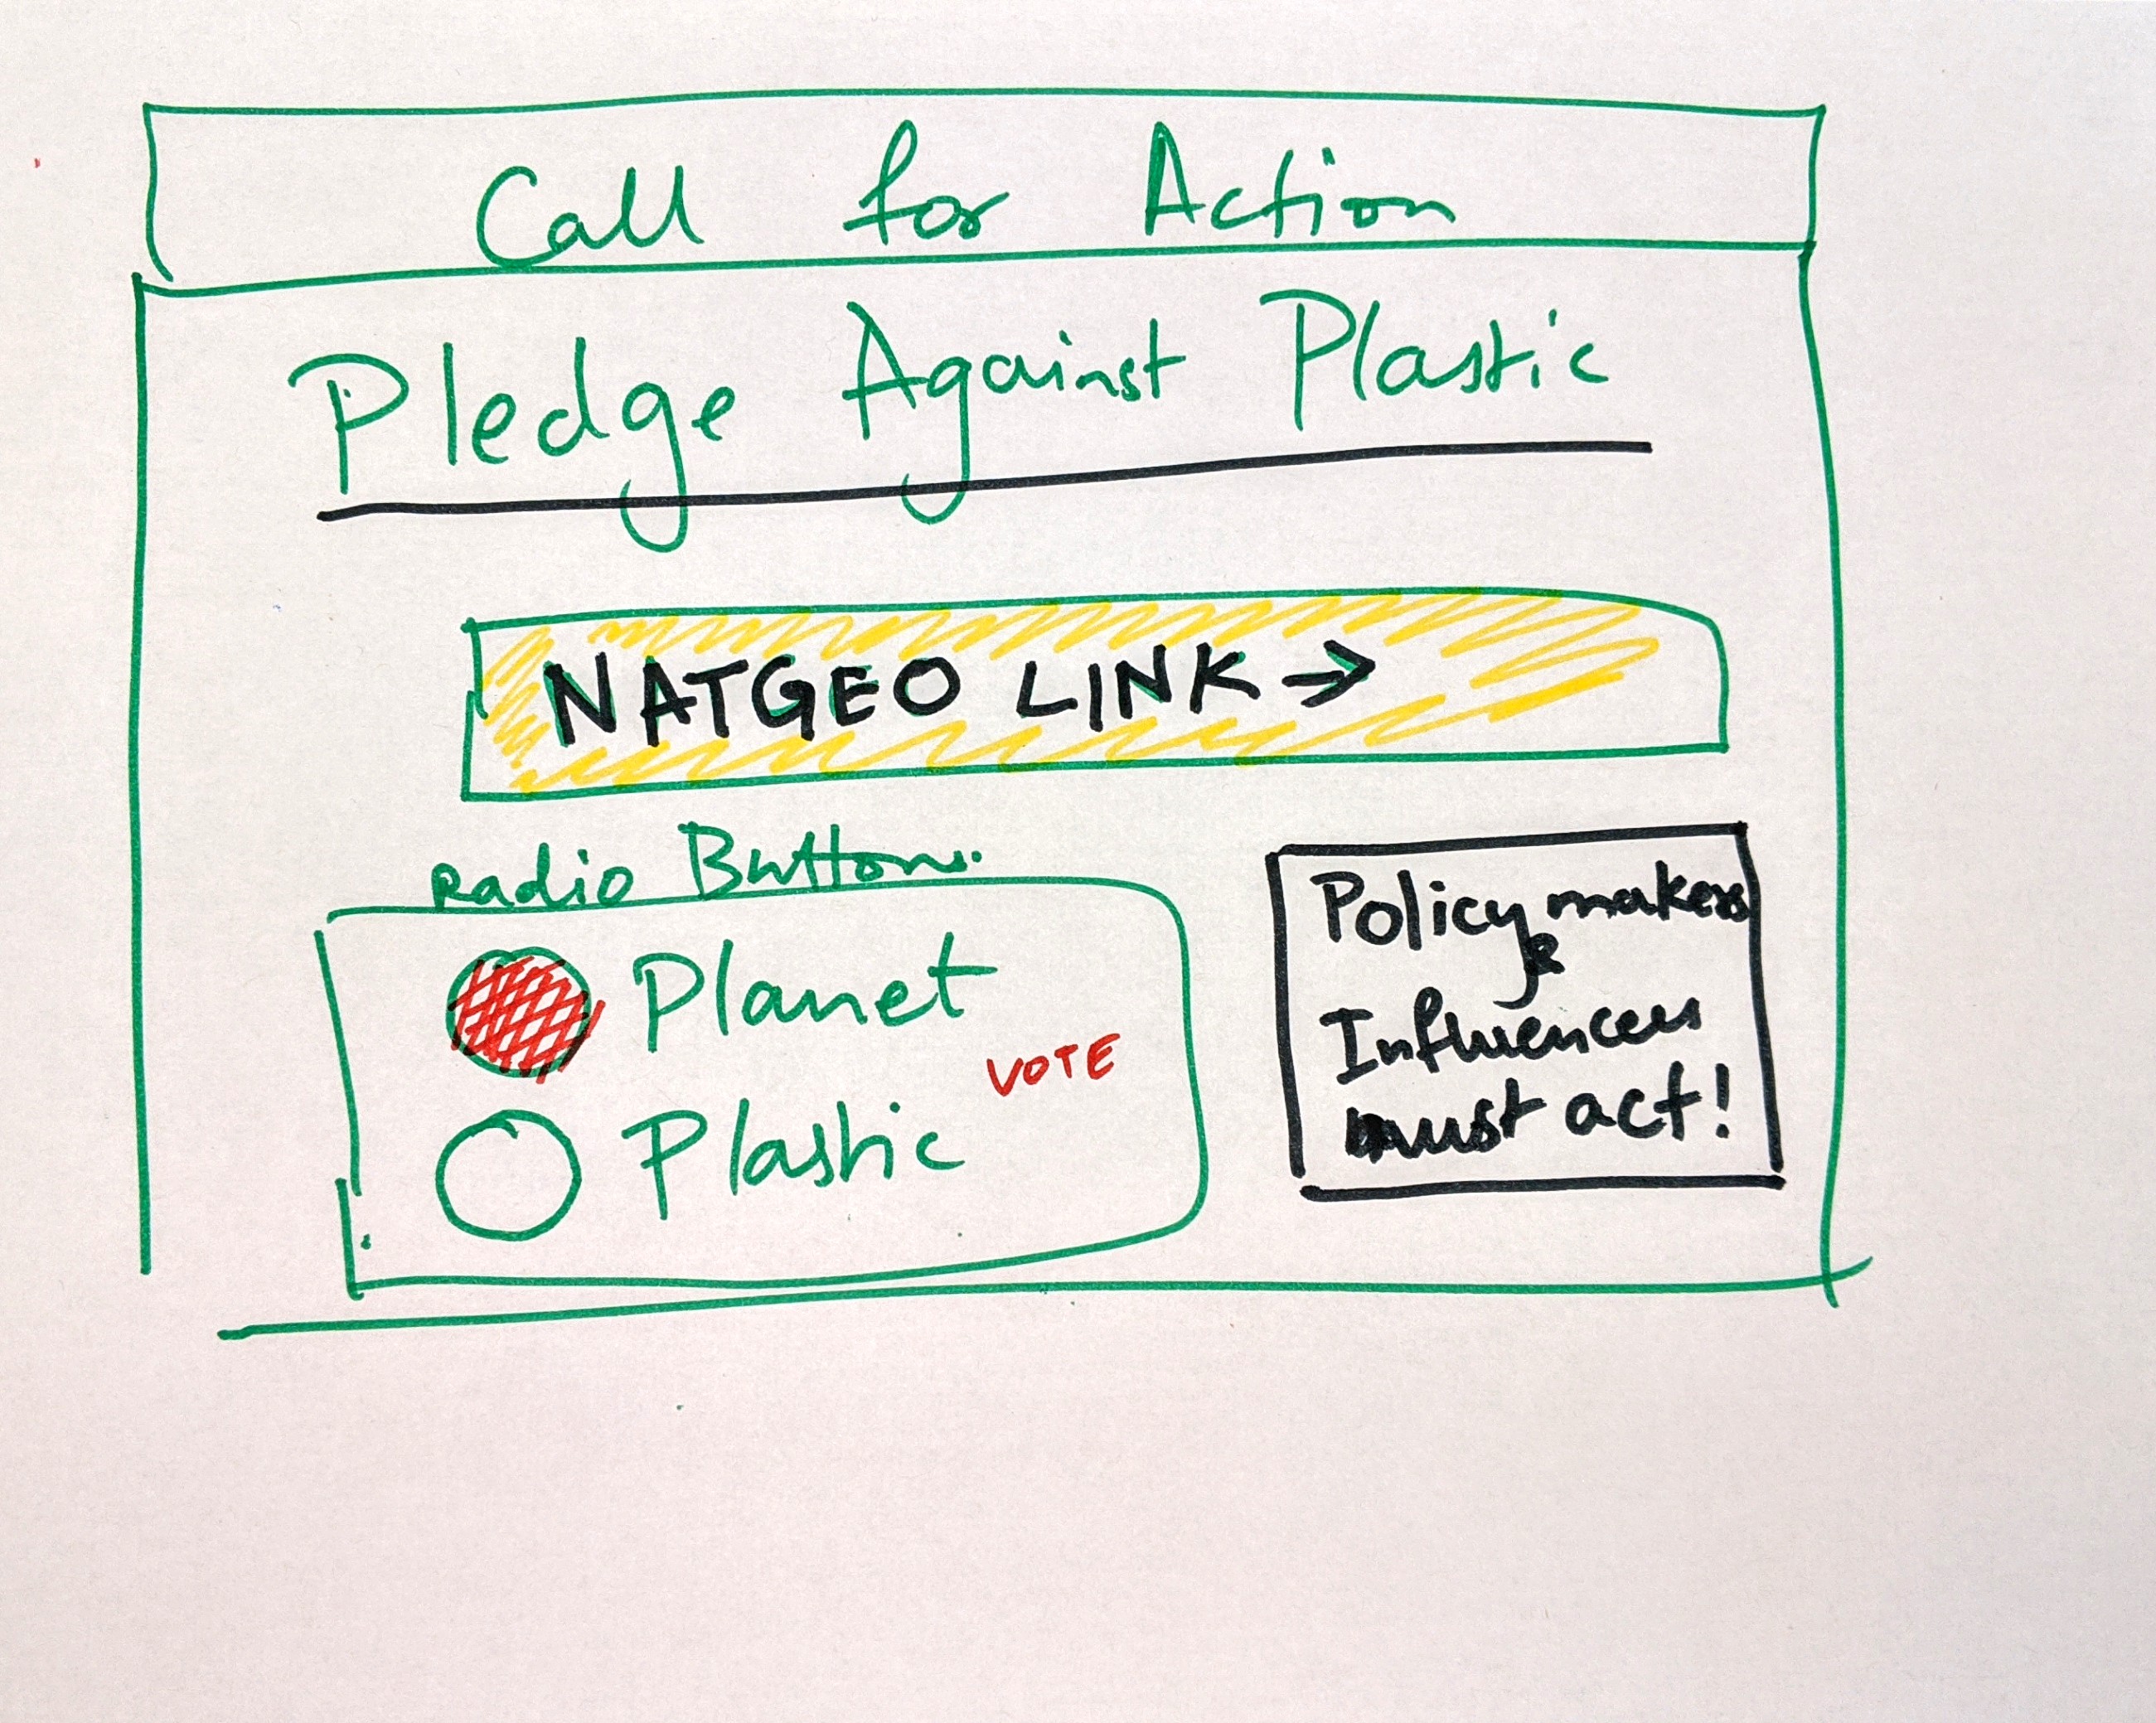 Call for Action
Pledge Against Plastic
NATGEO LINK →
Radio Buttons.
Planet
VOTE
Plastic
Policy makers
&
Influencers
must act!